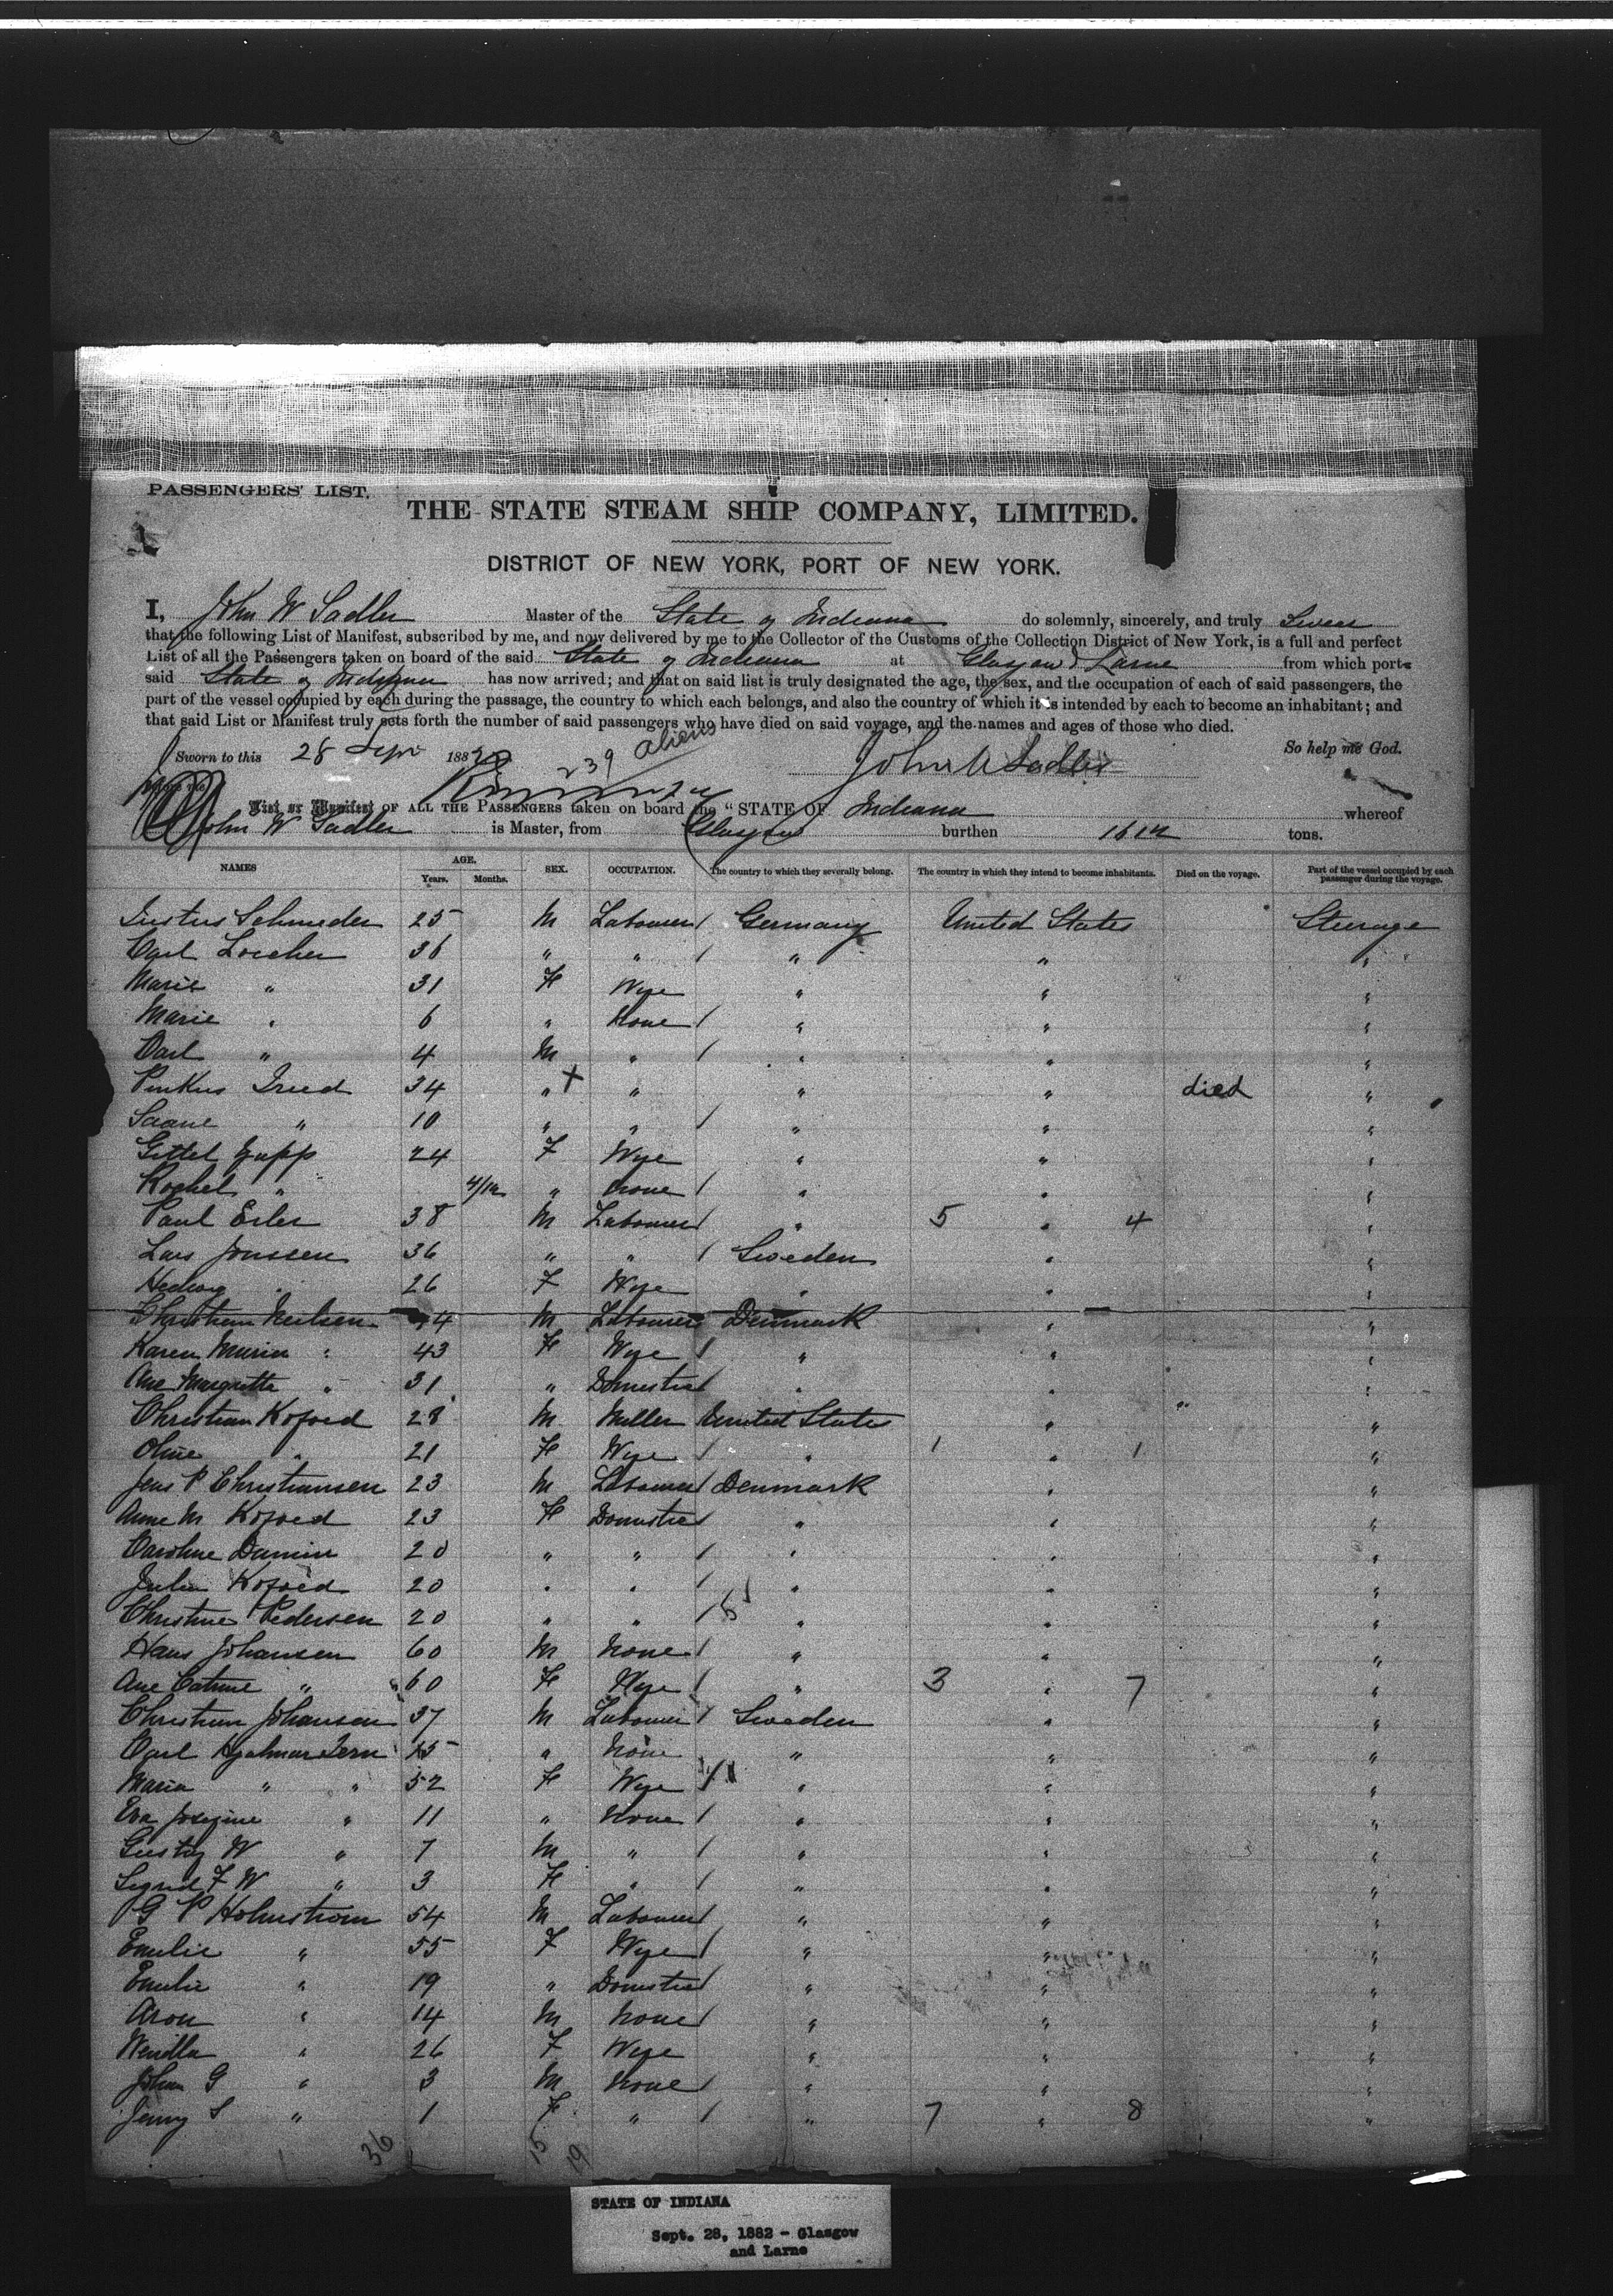 PASSENGERS' LIST.
1
THE STATE STEAM SHIP COMPANY, LIMITED.
DISTRICT OF NEW YORK, PORT OF NEW YORK.
I, John W Sadler Master of the State of Indiana do solemnly, sincerely, and truly Swear
that the following List of Manifest, subscribed by me, and now delivered by me to the Collector of the Customs of the Collection District of New York, is a full and perfect
List of all the Passengers taken on board of the said State of Indiana at Glasgow & Larne from which port
said State of Indiana has now arrived; and that on said list is truly designated the age, the sex, and the occupation of each of said passengers, the
part of the vessel occupied by each during the passage, the country to which each belongs, and also the country of which it is intended by each to become an inhabitant; and
that said List or Manifest truly sets forth the number of said passengers who have died on said voyage, and the names and ages of those who died.
Sworn to this 28 Sept 1882 239 aliens John W Sadler So help me God.
List or Manifest OF ALL THE PASSENGERS taken on board the "STATE OF Indiana whereof
John W Sadler is Master, from Glasgow burthen 1612 tons.
NAMES AGE. Years. Months. SEX. OCCUPATION. The country to which they severally belong. The country in which they intend to become inhabitants. Died on the voyage. Part of the vessel occupied by each passenger during the voyage.
Justus Schneider 25 M Labourer / Germany United States Steerage
Carl Lorcher 36 " " / " " "
Marie " 31 F Wife " " "
Marie " 6 " None / " " "
Carl " 4 M " / " " "
Pinkus Fried 34 " X " " " died "
" 10 " " / " " "
Gittel 24 F Wife " " "
Rochel " 4/12 " None / " " "
Paul Erler 38 M Labourer / " 5 " 4 "
Lars Jonssen 36 " " / Sweden " "
Hedwig " 26 F Wife " " "
Christian Neilsen 44 M Labourer Denmark " "
Karen Maria " 43 F Wife / " " "
Ane Margretta " 31 " Domestic / " " "
Christian Kofoed 28 M Miller United States " " "
Oline " 21 F Wife / " 1 " 1 "
Jens P Christiansen 23 M Labourer / Denmark " "
Anne M Kofoed 23 F Domestic / " " "
Caroline 20 " " / " " "
Julia Kofoed 20 " " / " " "
Christine Pedersen 20 " " / " " "
Hans Johansen 60 M None / " " "
Ane Catrine " 60 F Wife / " 3 " 7 "
Christian Johansen 37 M Labourer / Sweden " "
Carl Hjalmar Fern 45 " None " " "
Maria " " 52 F Wife / " " "
Eva Josefine " 11 " None / " " "
Gustaf W " 7 M " / " " "
Sigrid F W " 3 F " / " " "
G P Holmstrom 54 M Labourer / " " "
Emilie " 55 F Wife / " " "
Emilie " 19 " Domestic / " " "
Aron " 14 M None / " " "
Wendla " 26 F Wife " " "
John G " 3 M None / " " "
Jenny S " 1 F " / " 7 " 8 "
36 15 19
STATE OF INDIANA
Sept. 28, 1882 - Glasgow
and Larne